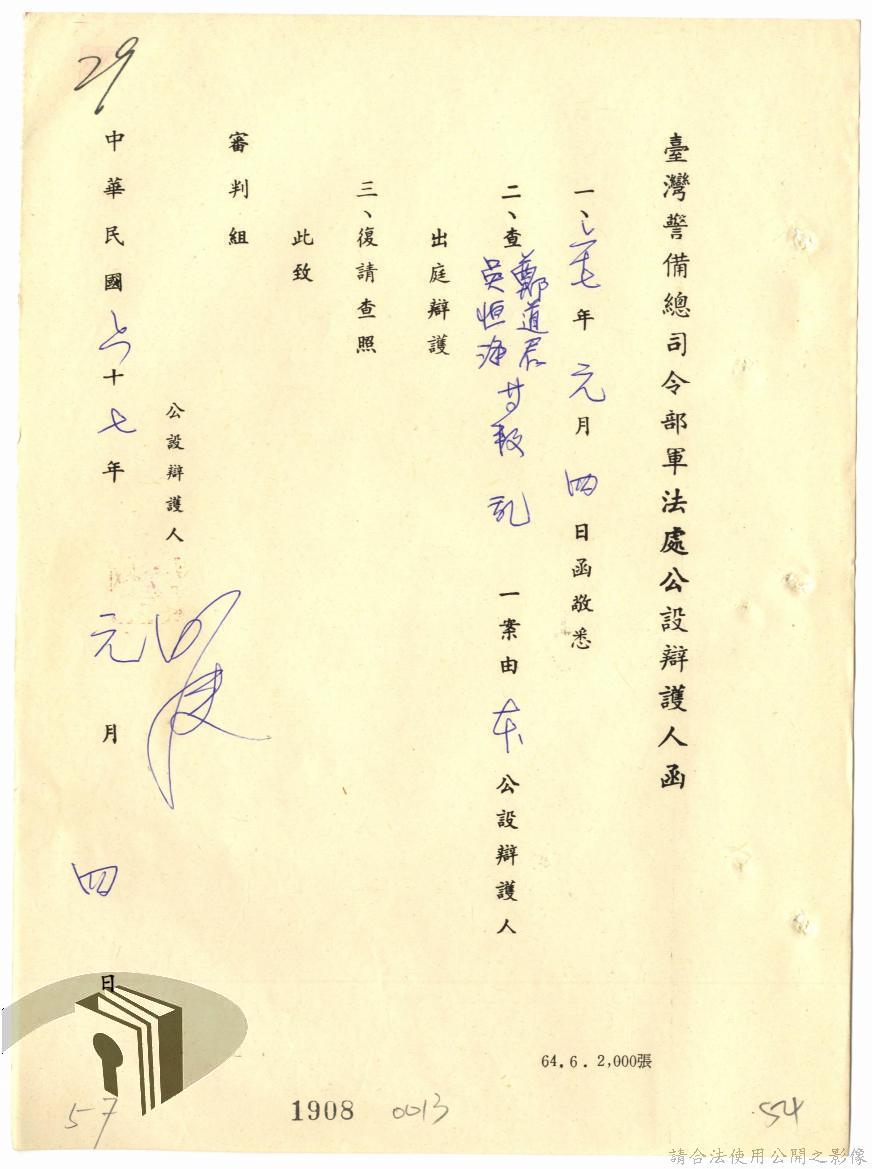 臺灣警備總司令部軍法處公設辯護人函
一、六十七年元月四日函敬悉
二、查鄭道君
吳恒海
等叛乱一案由本公設辯護人
出庭辯護
三、復請查照
此致
審判組
公設辯護人
中華民國六十七年元月四日
29
64.6.2,000張
57
1908
0013
54
請合法使用公開之影像